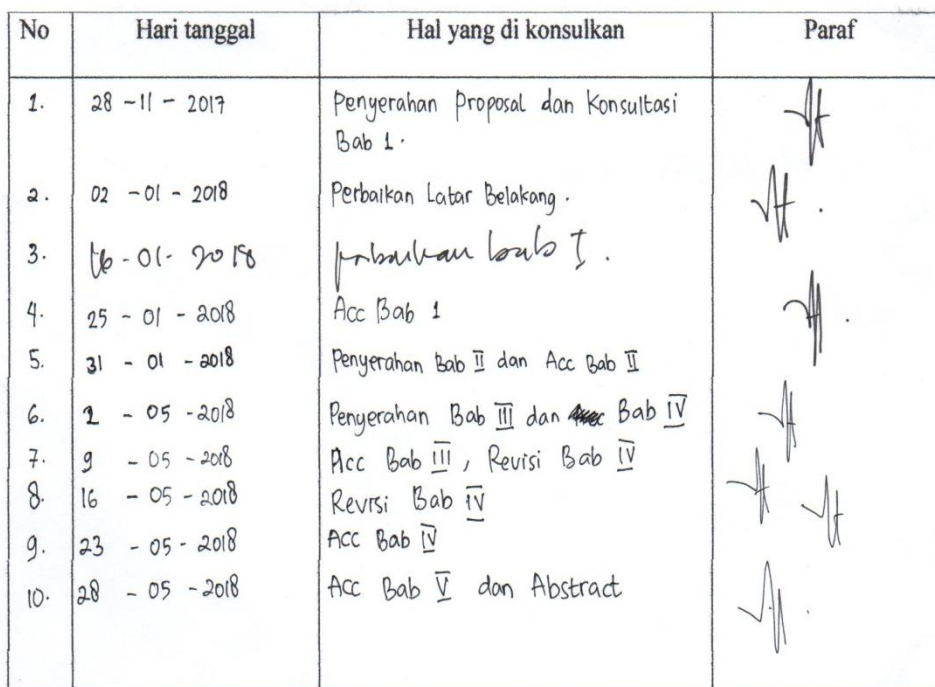 No Hari tanggal Hal yang di konsulkan Paraf
1. 28 - 11 - 2017 Penyerahan Proposal dan Konsultasi
Bab 1.
2. 02 - 01 - 2018 Perbaikan Latar Belakang.
3. 16 - 01 - 2018 perbaikan bab I.
4. 25 - 01 - 2018 Acc Bab 1
5. 31 - 01 - 2018 Penyerahan Bab II dan Acc Bab II
6. 2 - 05 - 2018 Penyerahan Bab III dan Bab IV
7. 9 - 05 - 2018 Acc Bab III, Revisi Bab IV
8. 16 - 05 - 2018 Revisi Bab IV
9. 23 - 05 - 2018 Acc Bab IV
10. 28 - 05 - 2018 Acc Bab V dan Abstract